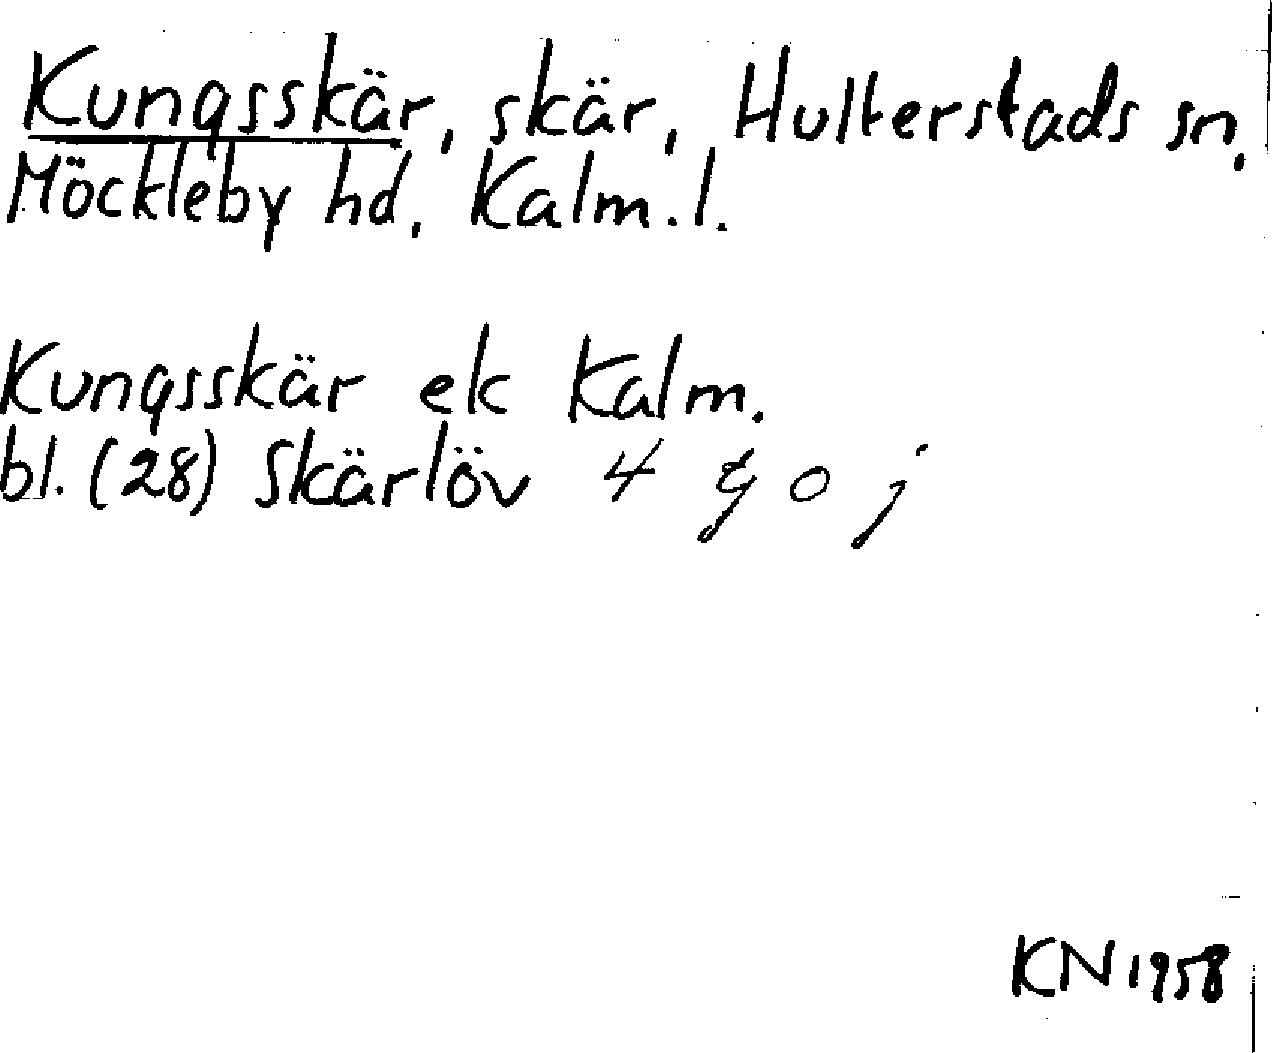 Kungsskär, skär, Hulterstads sn,
Möckleby hd, Kalm. l.
Kungsskär ek Kalm.
bl. (28) Skärlöv 4 g o j
KN 1958